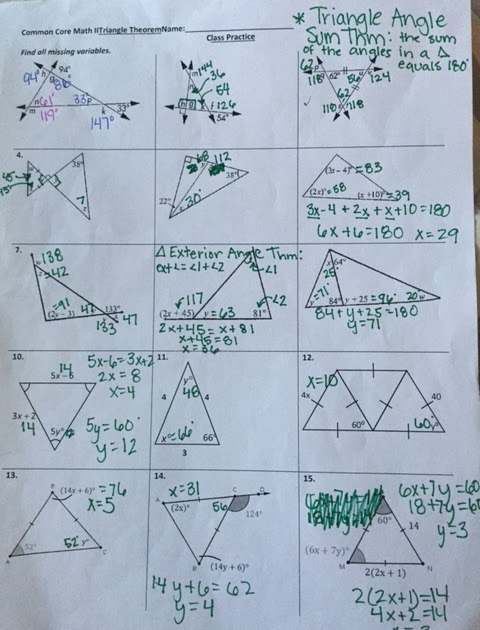 Common Core Math II Triangle Theorem Name:
Class Practice
* Triangle Angle
Sum Thm: the sum
of the angles in a Δ
equals 180°
Find all missing variables.
94° 94°
86°
61° 33°
m 119° k 33°
147°
144
36
54
126
54°
62
118 62° 56 124
62
118 118
4.
38°
45°
45°
7
68 112
38°
22° 30°
(3x - 4)° = 83
(2x)° = 58 (x + 10)° = 39
3x - 4 + 2x + x + 10 = 180
6x + 6 = 180 x = 29
7.
138
= 42
= 91 47 133°
(2y - 3) 133 47
Δ Exterior Angle Thm:
ext∠ = ∠1 + ∠2
∠1
117 ∠2
(2x + 45) y = 63 81°
2x + 45 = x + 81
x + 45 = 81
x = 36
x 64°
25°
= 71° 84° y + 25 = 96° 20 w
84 + y + 25 = 180
y = 71
10.
14
5x - 6
3x + 2
14
5y°
5x - 6 = 3x + 2
2x = 8
x = 4
5y = 60°
y = 12
11.
y°
4 48 4
x° = 66° 66°
3
12.
x = 10
4x 40
60° 60 y
13.
B (14x + 6)° = 76
x = 5
52° 52° y°
A C
14.
x = 31
A C D
(2x)° 56 124°
B (14y + 6)°
14y + 6 = 62
y = 4
15.
6x + 7y = 60
18 + 7y = 60
y = 3
60°
14
(6x + 7y)°
M N
2(2x + 1)
2(2x + 1) = 14
4x + 2 = 14